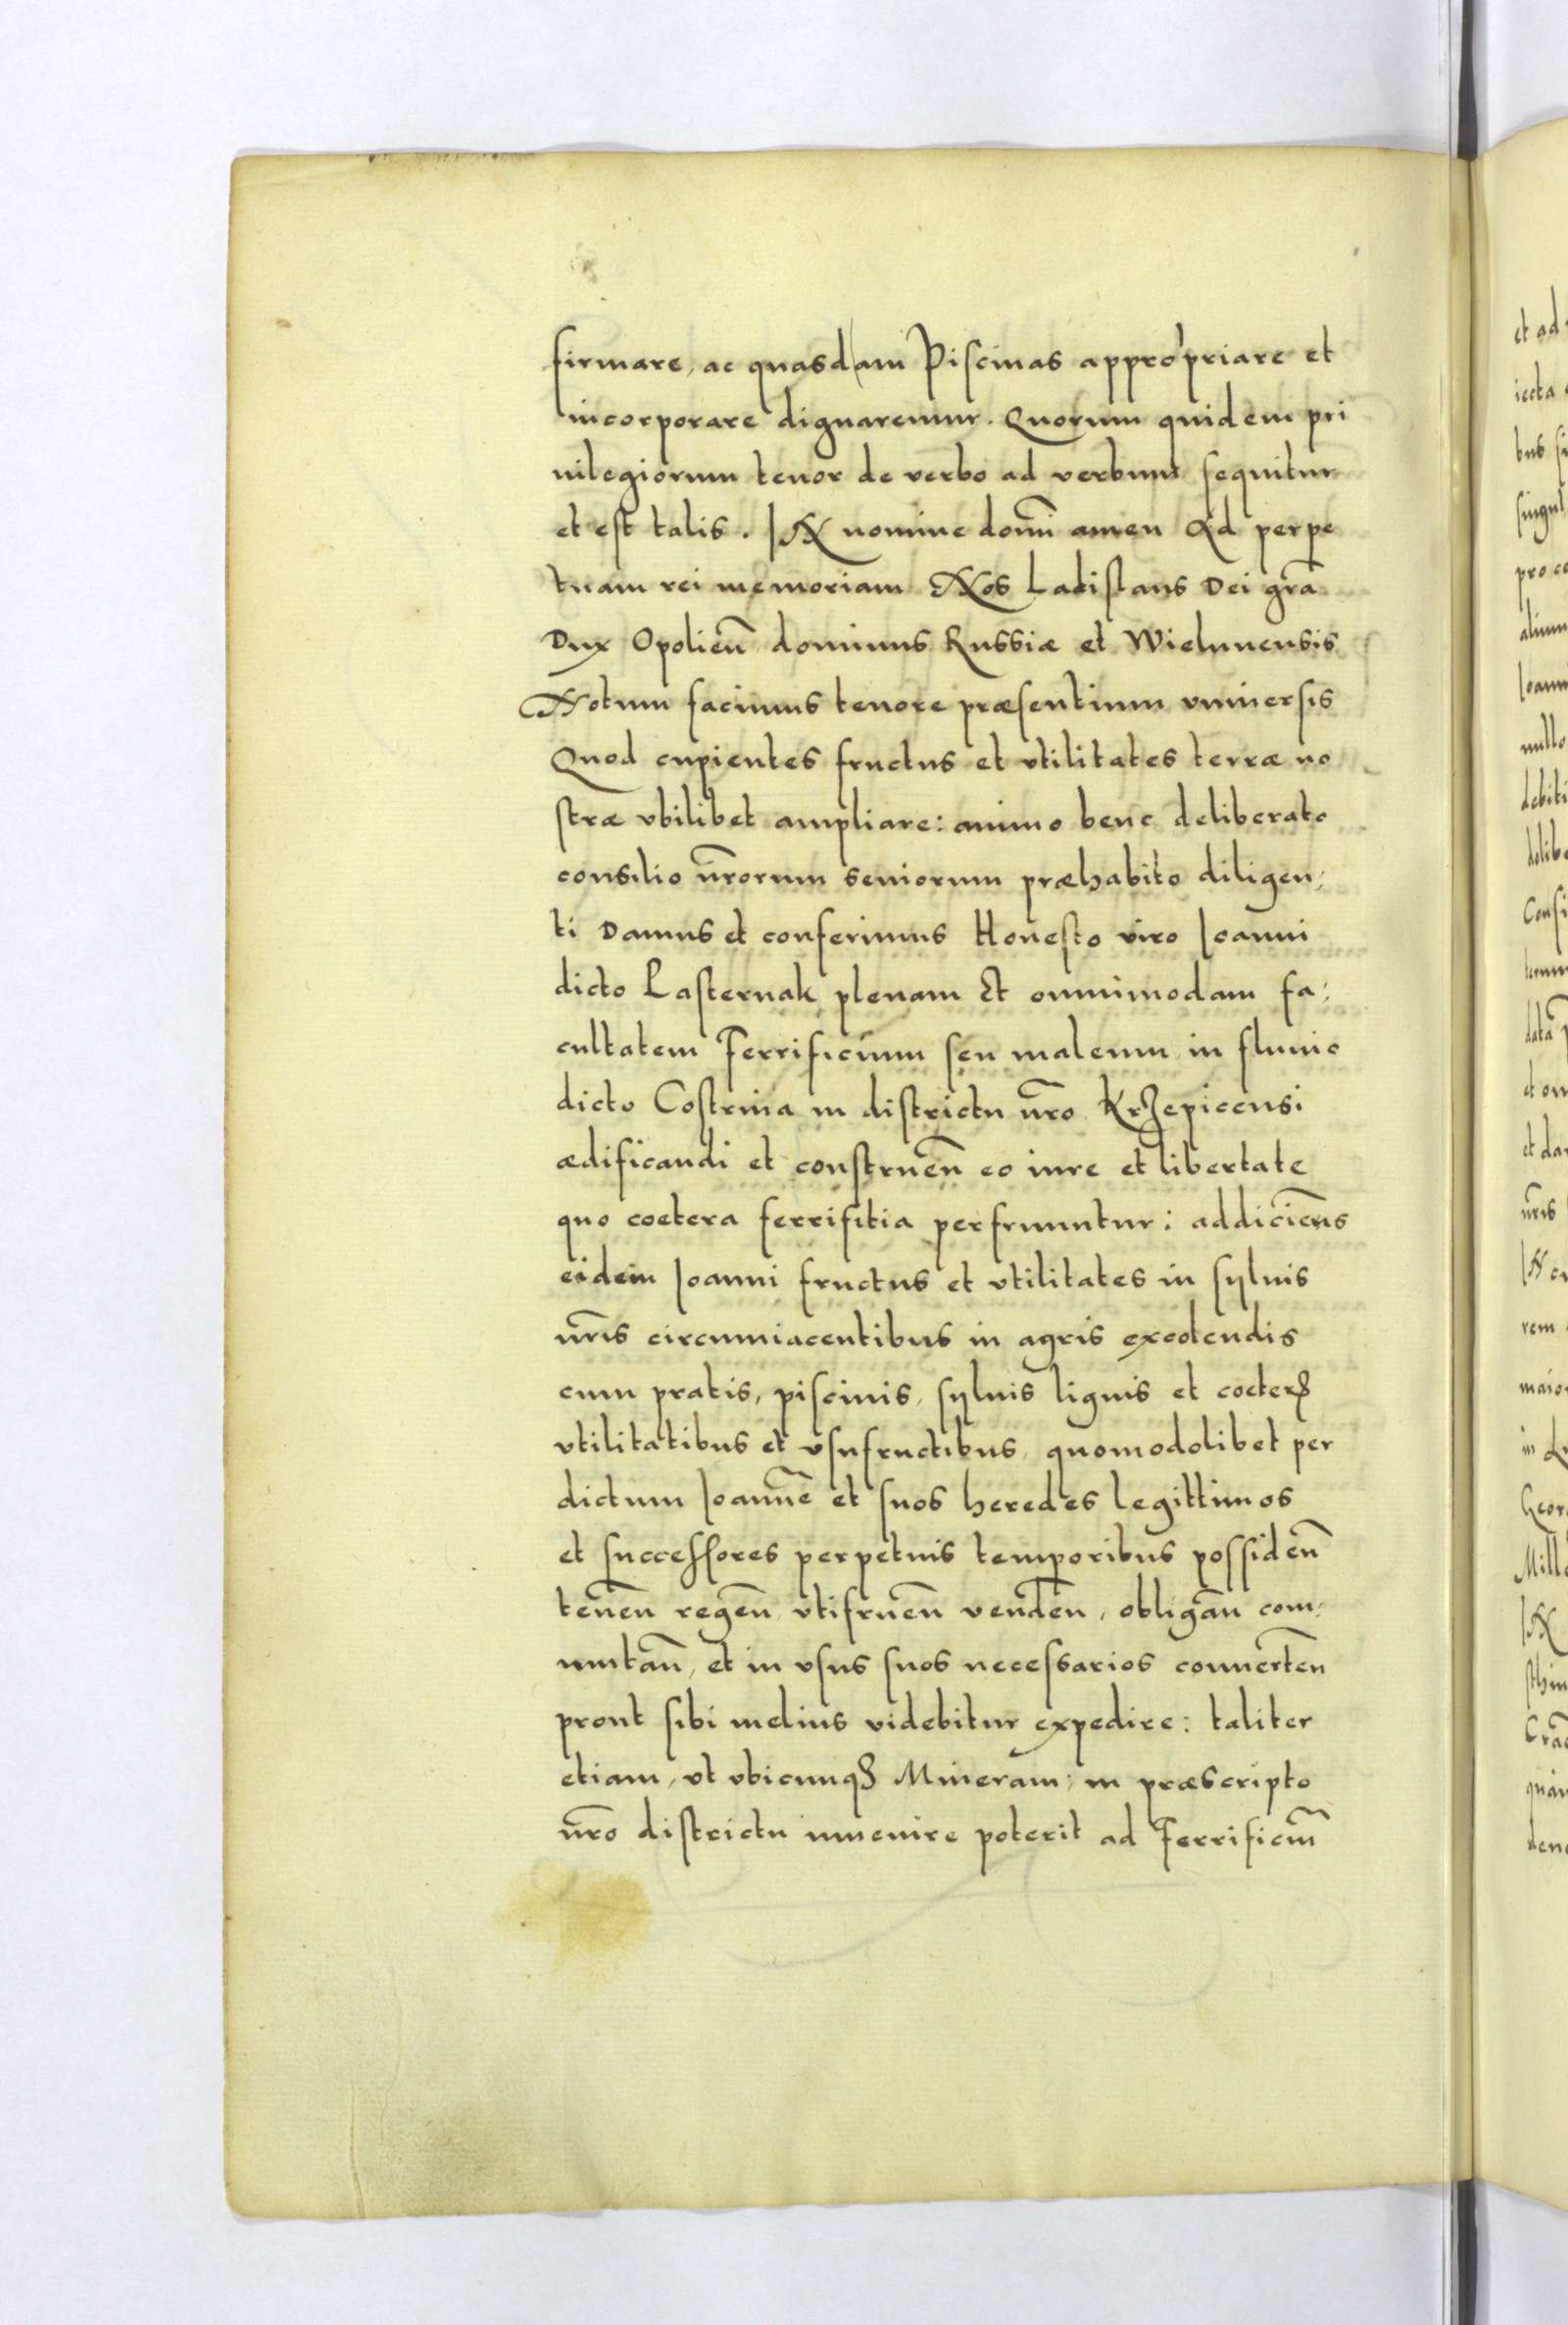 firmare, ac quasdam Piscinas appropriare et
incorporare dignaremur. Quorum quidem pri
uilegiorum tenor de verbo ad verbum sequitur
et est talis. IN nomine domĩ amen Ad perpe
tuam rei memoriam Nos Ladislaus Dei grã
Dux Opolieñ dominus Russiæ et Wielunensis
Notum facimus tenore præsentium vniuersis
Quod cupientes fructus et vtilitates terræ no
stræ vbilibet ampliare: animo bene deliberato
consilio nr̃orum seniorum præhabito diligen,
ti Damus et conferimus Honesto viro Ioanni
dicto Pasternak plenam Et omnimodam fa,
cultatem Ferrificium seu maleum in fluuio
dicto Costrina in districtu nr̃o Krzepicensi
ædificandi et construeñ eo iure et libertate
quo coetera ferrifitia perfruuntur: addiciens
eidem Ioanni fructus et vtilitates in syluis
nr̃is circumiacentibus in agris excolendis
cum pratis, piscinis, syluis lignis et coeterꝫ
vtilitatibus et vsufructibus, quomodolibet per
dictum Ioannẽ et suos heredes legittimos
et successores perpetuis temporibus possideñ
teneñ regeñ, vtifrueñ vendeñ, obligañ com,
mutañ, et in vsus suos necessarios conuerteñ
prout sibi melius videbitur expedire: taliter
etiam, vt vbicunqꝫ Mineram, in præscripto
nr̃o districtu inuenire poterit ad Ferrificiũ
et ad
iecta
bus si
singul
pro ce
alium
Ioann
nullo
debiti
delibe
Consi
datã
et om
et da
nr̃is
IN
rem
maior
in
Geor
Mill
IN
Crac